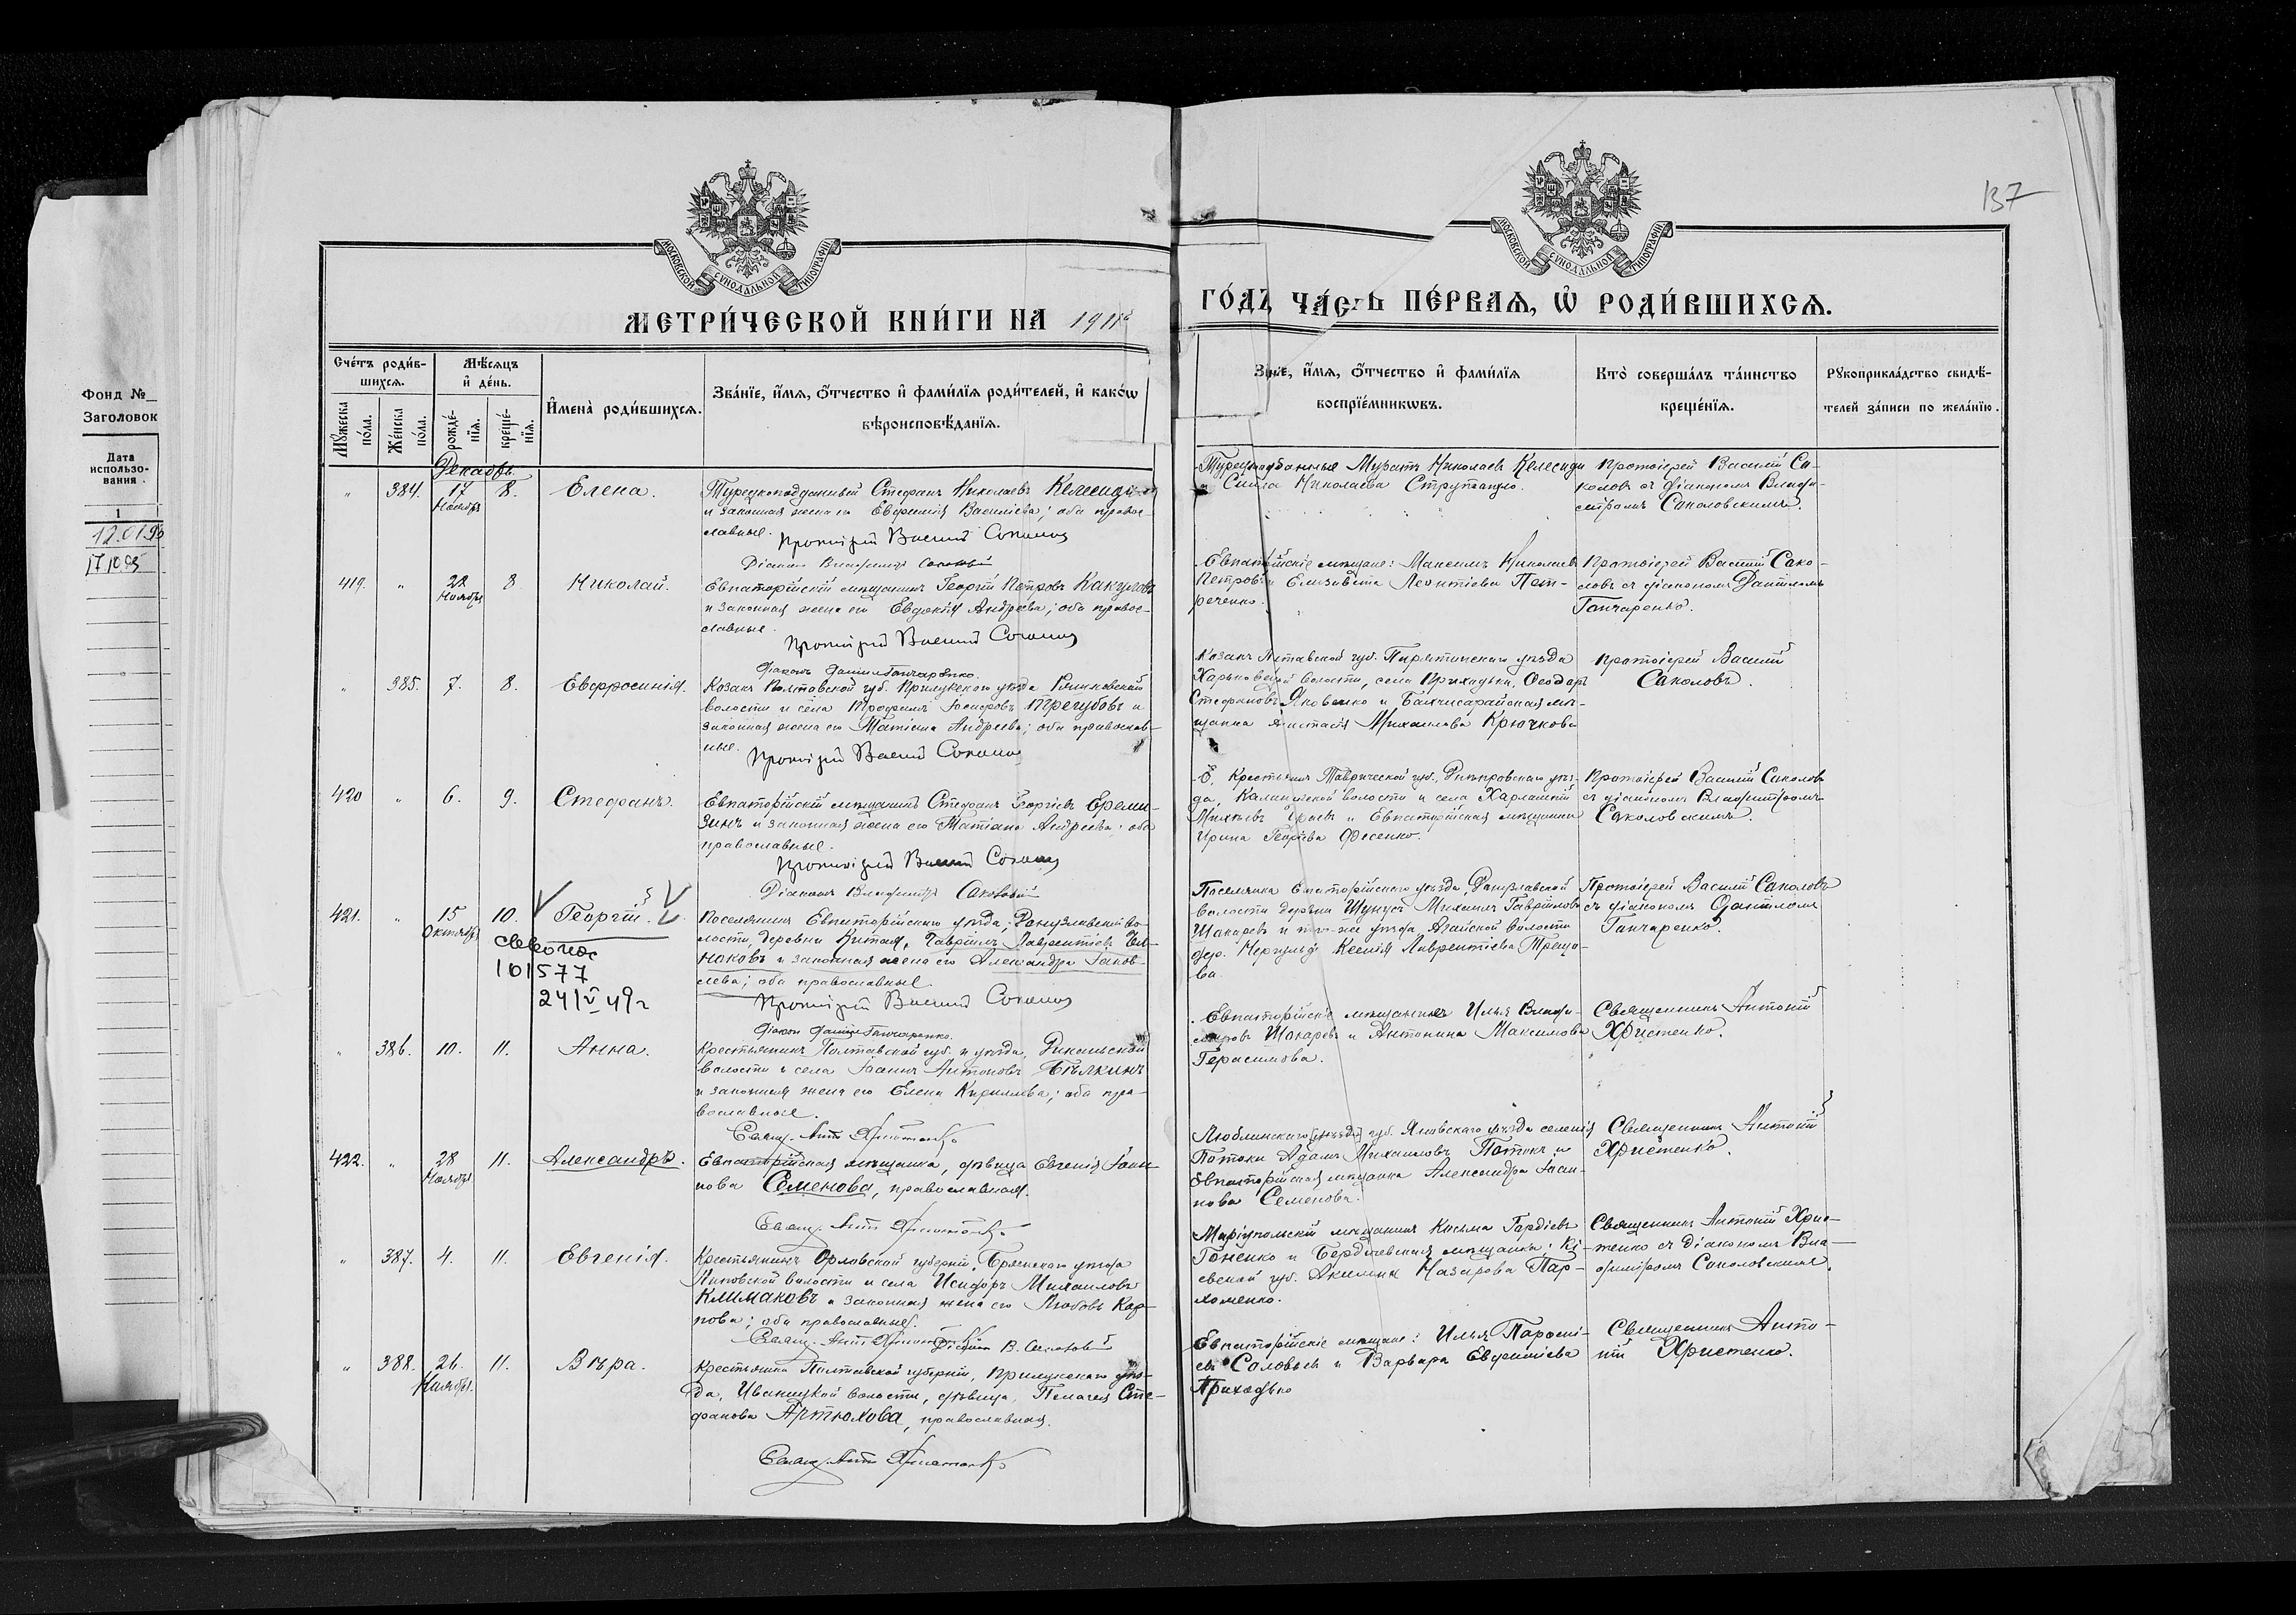 Фонд №
Заголовок
Дата
использо-
вания
1
12.01.96
17.10.95
137
МОСКОВСКОЙ СѴНОДАЛЬНОЙ ТИПОГРАФІИ
МОСКОВСКОЙ СѴНОДАЛЬНОЙ ТИПОГРАФІИ
МЕТРИ́ЧЕСКОЙ КНИ́ГИ НА 1911й
ГО́ДЪ, ЧА́СТЬ ПЕ́РВАѦ, Ѡ҆ РОДИ́ВШИХСѦ.
Сче́тъ роди́в-
шихсѧ.
Мꙋ́жеска по́ла.
Же́нска по́ла.
Мѣ́сѧцъ
и҆ де́нь.
рожде́-
нїѧ.
креще́-
нїѧ.
И҆мена̀ роди́вшихсѧ.
Зва́нїе, и҆́мѧ, ѻ҆́тчество и҆ фами́лїѧ роди́телей, и҆ како́гѡ
вѣроисповѣ́данїѧ.
Зва́нїе, и҆́мѧ, ѻ҆́тчество и҆ фами́лїѧ
воспрїе́мникѡвъ.
Кто̀ соверша́лъ та́инство
креще́нїѧ.
Рꙋкоприкла́дство свидѣ́-
телей за́писи по жела́нїю.
Декабрь.
" 384. 17 Ноября 8. Елена.
Турецкоподданный Стефанъ Николаевъ Келесиди
и законная жена его Евфимія Василіева; оба право-
славные.
Протоіерей Василій Соколовъ
Діаконъ Владиміръ Соколовскій
Турецкоподданные Муратъ Николаевъ Келесиди
и Николаева
Протоіерей Василій Со-
коловъ съ діакономъ Влади-
міромъ Соколовскимъ.
419. " 22 Ноября 8 Николай.
Евпаторійскій мѣщанинъ Георгій Петровъ Какуловъ
и законная жена его Евдокія Андреева; оба право-
славные.
Протоіерей Василій Соколовъ
Діаконъ Даніилъ Гончаренко.
Евпаторійскіе мѣщане: Максимъ Николаевъ
Петровъ и Елизавета Леонтіева Пет-
реченко.
Протоіерей Василій Соко-
ловъ съ діакономъ Даніиломъ
Гончаренко.
" 385. 7. 8. Евфросинія.
Козакъ Полтавской губ. Прилукскаго уѣзда
волости и села Трофимъ Іосифовъ Трегубовъ и
законная жена его Татіана Андреева; оба православ-
ные.
Протоіерей Василій Соколовъ
Козакъ Полтавской губ. Пирятинскаго уѣзда
Харьковецкой волости, села Приходьки, Ѳеодоръ
Стефановъ Яковенко и Бахчисарайская мѣ-
щанка Анастасія Михаилова Крючкова
Протоіерей Василій
Соколовъ.
420 " 6. 9. Стефанъ.
Евпаторійскій мѣщанинъ Стефанъ Георгіевъ Ереми-
зинъ и законная жена его Татіана Андреева; оба
православные.
Протоіерей Василій Соколовъ
Діаконъ Владиміръ Соколовскій
Крестьянинъ Таврической губ., Днѣпровскаго уѣз-
да, волости и села
и Евпаторійская мѣщанка
Ирина Георгіева Фесенко.
Протоіерей Василій Соколовъ
съ діакономъ Владиміромъ
Соколовскимъ.
421. " 15 Октября 10. Георгій.
свѣрено
101577
24/V 49г
Поселянинъ Евпаторійскаго уѣзда, Донузлавской во-
лости, деревни Китай, Гавріилъ Лаврентіевъ Чел-
ноковъ и законная жена его Александра Іаков-
лева; оба православные.
Протоіерей Василій Соколовъ
Діаконъ Даніилъ Гончаренко.
Поселянинъ Евпаторійскаго уѣзда, Донузлавской
волости деревни Шунукъ Михаилъ Гавріиловъ
Шокаревъ и того-же уѣзда Агайской волости
дер. Ксенія Лаврентіева Трецо-
ва.
Протоіерей Василій Соколовъ
съ діакономъ Даніиломъ
Гончаренко.
" 386. 10. 11. Анна.
Крестьянинъ Полтавской губ. и уѣзда, Диканьской
волости и села Іоаннъ Антоновъ Бѣлкинъ
и законная жена его Елена Кириллова; оба пра-
вославные.
Свящ. Антоній Христенко
Евпаторійскіе мѣщане Илья Влади-
міровъ Шокаревъ и Антонина Максимова
Герасимова.
Священникъ Антоній
Христенко.
422. " 28 Ноября 11. Александръ.
Евпаторійская мѣщанка, дѣвица Евгенія Іоан-
нова Семенова, православная.
Свящ. Антоній Христенко
Люблинского [уѣзда] губ. Яновскаго уѣзда селенія
Потоки Адамъ Михаиловъ Потокъ и
Евпаторійская мѣщанка Александра Іоан-
нова Семенова.
Священникъ Антоній
Христенко.
" 387. 4. 11. Евгенія.
Крестьянинъ Орловской губерніи, Брянскаго уѣзда
волости и села Исидоръ Михаиловъ
Климаковъ и законная жена его Любовь Кар-
пова; оба православные.
Свящ. Антоній Христенко Діаконъ В. Соколовскій
Маріупольскій мѣщанинъ Косьма Гордіевъ
Гоненко и Бердичевская мѣщанка, Кі-
евской губ. Акилина Назарова Пар-
хоменко.
Священникъ Антоній Хрис-
тенко съ діакономъ Вла-
диміромъ Соколовскимъ.
" 388. 26. Ноября. 11. Вѣра.
Крестьянка Полтавской губерніи, Прилукскаго уѣз-
да, Иваницкой волости, дѣвица, Пелагея Сте-
фанова Артюхова, православная.
Свящ. Антоній Христенко
Евпаторійскіе мѣщане: Илья
Соловьевъ и Варвара Евфиміева
Приходько
Священникъ Анто-
ній Христенко.